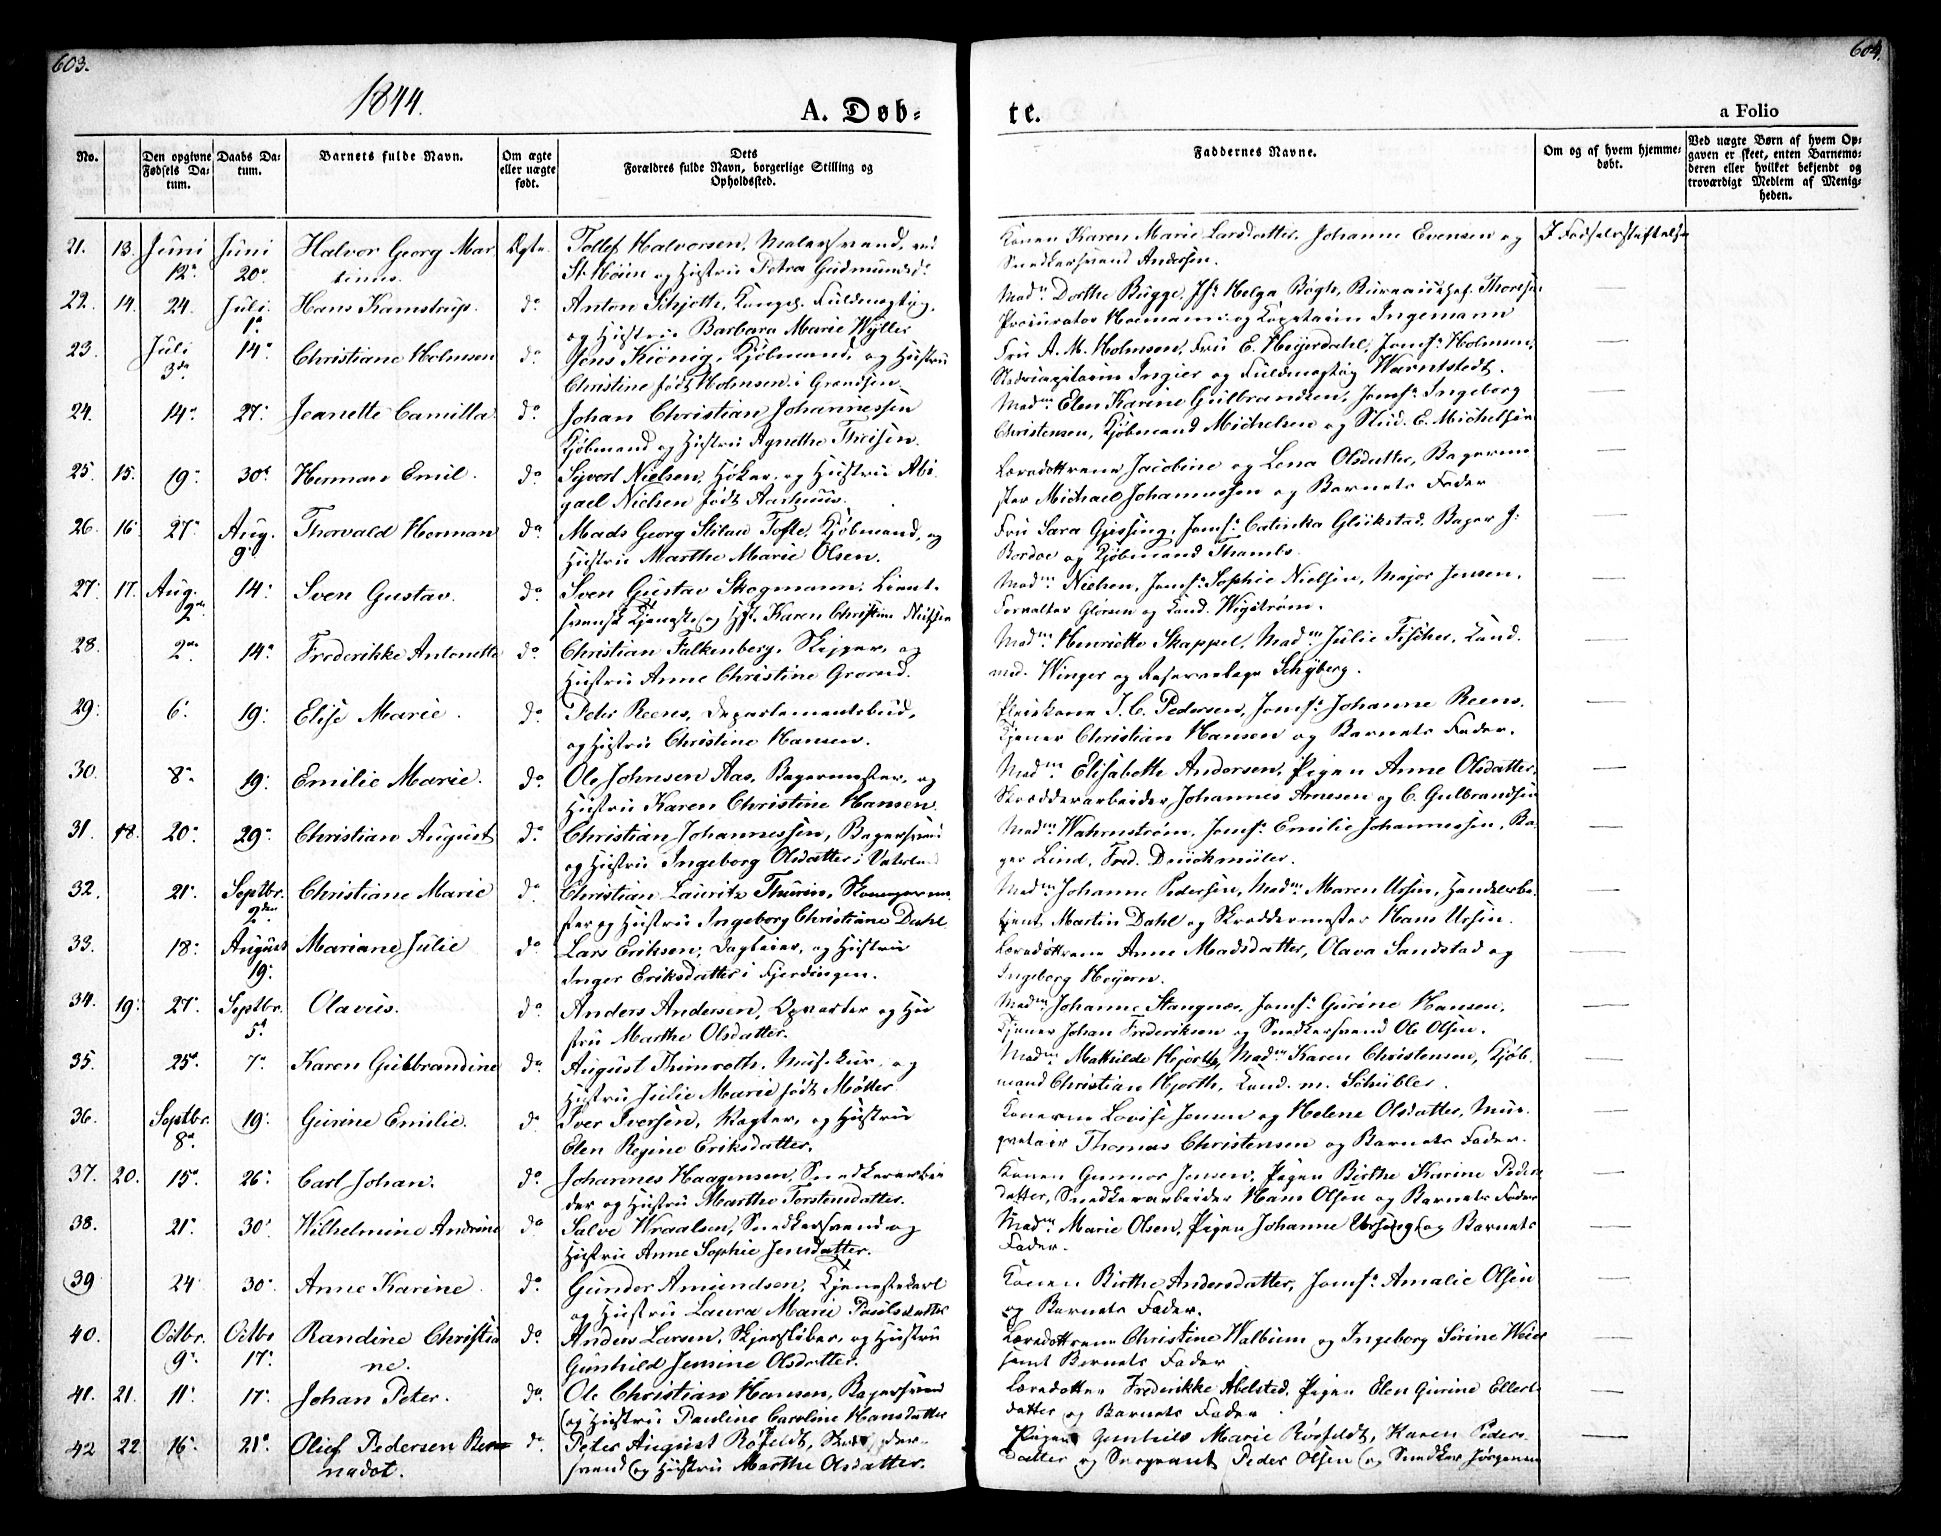 603.
604.
1844.
A. Døb-
te.
a Folio
No.
Den opgivne Fødsels Datum.
Daabs Datum.
Barnets fulde Navn.
Om ægte eller uægte født.
Dets Forældres fulde Navn, borgerlige Stilling og Opholdssted.
Faddernes Navne.
Om og af hvem hjemmedøbt.
Ved uægte Børn af hvem Opgaven er skeet, enten Barnemoderen eller hvilket bekjendt og troværdigt Medlem af Menigheden.
21. 13. Juni 12. Juni 20. Halvor Georg Martinus. Ægte. Tollef Halvorsen, Malersvend, ved
St. HØien og Hustru Petra Gudmundsd.
Konen Karen Marie Larsdatter, Johanne Evensen og
Snedkersvend Andersen.
I Fødselsstiftelse
22. 14. 24. Juli 1. Hans Kamstrup. do Anton Schjøth, Fuldmægtig,
og Hustru Barbara Marie Wyller
Mad. Dorthe Bugge, Jfr. Helga Bøgh,
Procurator og Capitain Ingemann
23. Juli 3 14. Christiane Holmsen do Jens Kiønig, Kjøbmand, og Hustru
Christine født Holmsen i Grændsen
Fru A. M. Holmsen, Fru E. Heyerdahl, Jomf. Holmsen,
Ingier og Fuldmægtig Warntstedt.
24. 14. 27. Jeanette Camilla do Johan Christian Johannessen
Kjøbmand og Hustru Agnethe Theisen.
Mad. Elen Karine Gulbrandsen, Jomf. Ingeborg
Christensen, Kjøbmand Michelsen og Stud. E. Michelsen
25. 15. 19. 30. Herman Emil. do Syvert Nielsen, Høker, og Hustru Abi-
gael Nielsen født Aarhuus.
Læredøttrene Jacobine og Lena Olsdatter, Bagerme-
ster Michael Johannessen og Barnets Fader
26. 16. 27. Aug. 9. Thorvald Herman do Mads Georg Stilau Tofte, Kjøbmand, og
Hustru Marthe Marie Olsen.
Fru Sara Gjessing, Jomf. Catinka Glückstad, Bager J.
Bordoe og Kjøbmand Thambs.
27. 17. Aug. 2 14. Sven Gustav. do Sven Gustav Skogmann, Lieut.
svensk Tjeneste og H. Karen Christine Nielsen
Mad. Nielsen, Jomf. Sophie Nielsen, Major Jensen,
Forvalter Glørsen og Cand. Wigstrøm.
28. 2 14. Frederikke Antonette do Christian Falkenberg, Skipper, og
Hustru Anne Christine Grorud.
Mad. Henriette Skappel, Mad. Julie Fischer, Cand.
med. Winger og Reservelæge Schiberg.
29. 6. 19. Elise Marie. do Peter Reens, Departementsbud,
og Hustru Christine Hansen.
I. C. Pedersen, Jomf. Johanne Reens,
Tjener Christian Hansen og Barnets Fader.
30. 8. 19. Emilie Marie. do Ole Johnsen Aas, Bagermester, og
Hustru Karen Christine Hansen.
Mad. Elisabeth Andersen, Pigen Anne Olsdatter,
Skrædderarbeider Johannes Arnesen og C. Gulbrandsen
31. 18. 20. 29. Christian August do Christian Johannessen, Bagersvend
og Hustru Ingeborg Olsdatter i Vaterland
Mad. Wahrnstrøm, Jomf. Emilie Johannessen, Ba-
ger Lind, Fred. Drückmüler.
32. 21. Septbr. 2den Christiane Marie do Christian Lauritz Thurin,
ster og Hustru Ingeborg Christiane Dahl
Mad. Johanne Pedersen, Mad. Maren Ursin, Handelsbe-
tjent Martin Dahl og Skræddermester Hans Ursin.
33. 18. August 19. Mariane Julie do Lars Eriksen, Dagleier, og Hustru
Inger Eriksdatter i Fjerdingen.
Læredøttrene Anne Madsdatter, Olava Sandstad og
Ingeborg Hoyern.
34. 19. 27. Septbr. 5. Olavus. do Anders Andersen, Opvarter og Hu-
stru Marthe Olsdatter.
Mad. Johanne Stangnæs, Jomf. Gurine Hansen,
Tjener Johan Frederiksen og Snedkersvend Ole Olsen.
35. 25. 7. Karen Gulbrandine do August Thimroth, Musikus, og
Hustru Julie Marie født Møller
Mad. Mathilde Hjorth, Mad. Karen Christensen, Kjøb-
mand Christian Hjorth, Cand. m. Schübler.
36. Septbr. 8. 19. Gurine Emilie. do Iver Iversen, Vægter, og Hustru
Elen Regine Eriksdatter.
Konerne Lovise Jensen og Helene Olsdatter, Mur-
Thomas Christensen og Barnets Fader.
37. 20. 15. 26. Carl Johan. do Johannes Haagensen, Snedkerarbei-
der og Hustru Marthe Torstensdatter.
Konen Gunnor Jensen, Pigen Birthe Karine Peders-
datter, Snedkerarbeider Hans Olsen og Barnets Fader
38. 21. 30. Wilhelmine Andrine do Salve Wraalsen, Snedkersvend og
Hustru Anne Sophie Jensdatter.
Mad. Marie Olsen, Pigen Johanne og Barnets
Fader.
39 24 30. Anne Karine. do Gunder Amundsen, Tjenestekarl
og Hustru Laura Marie Paulsdatter
Konen Birthe Andersdatter, Jomf. Amalie Olsen
og Barnets Fader.
40. Octbr. 9. Octbr 17. Randine Christiane. do Anders Larsen, og Hustru
Gunhild Jensine Olsdatter.
Læredøttrene Christine Walbum og Ingeborg Sirine
samt Barnets Fader
41. 21. 11. 17. Johan Peter. do Ole Christian Hansen, Bagersvend
og Hustru Pauline Caroline Hansdatter
Læredatter Frederikke Abelsted, Pigen Elen Gurine Ellers-
datter og Barnets Fader
42 22 16. 21. Oluf Pedersen Bernadot. do Peter August Rosfeldt, Skrædder-
svend og Hustru Marthe Olsdatter.
Pigen Gunhild Marie Rosfeldt, Karen Peders-
datter og Sergeant Peder Olsen og Snedker Jørgensen